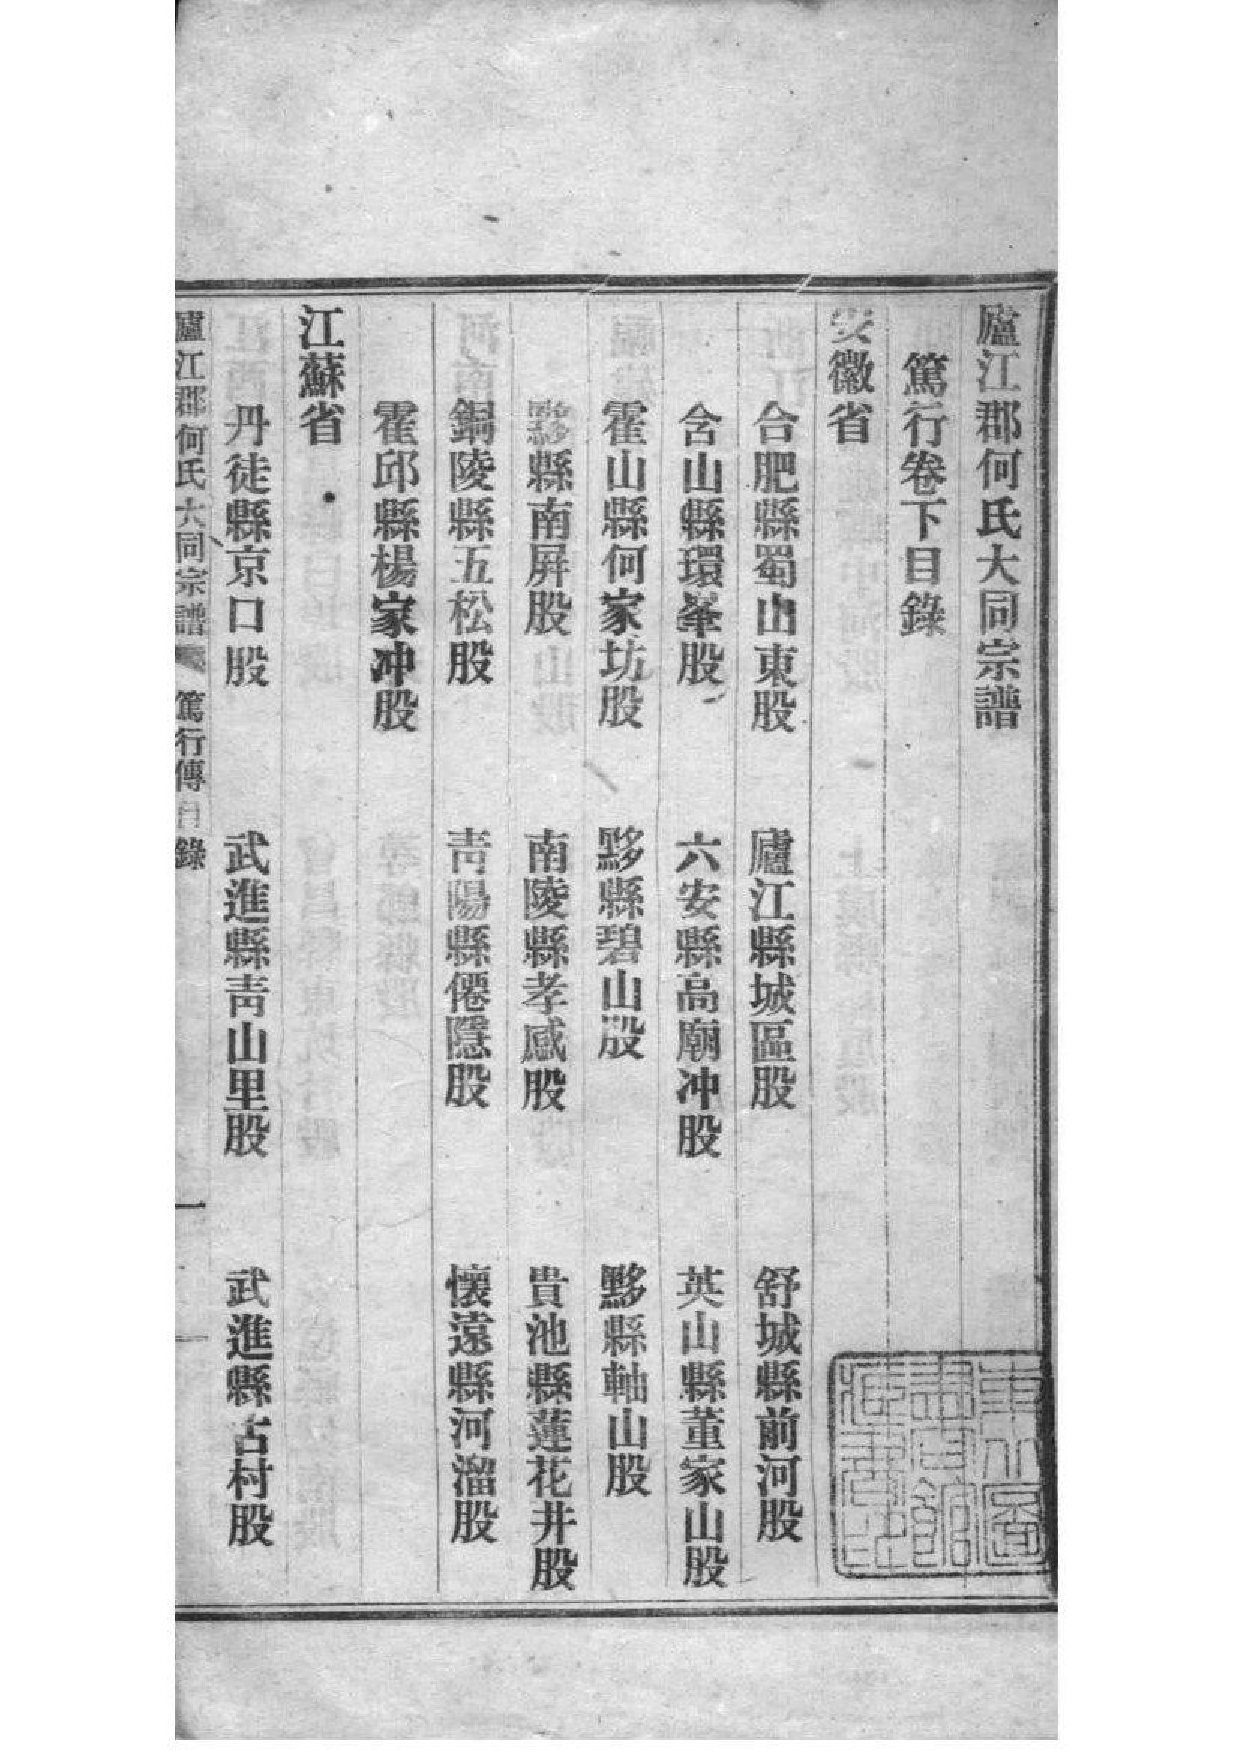 廬江郡何氏大同宗譜
篤行卷下目錄
安徽省
合肥縣蜀山東股　廬江縣城區股　舒城縣前河股
含山縣環峯股　六安縣高廟冲股　英山縣董家山股
霍山縣何家坊股　黟縣碧山股　黟縣軸山股
黟縣南屏股　南陵縣孝感股　貴池縣蓮花井股
銅陵縣五松股　青陽縣僊隱股　懷遠縣河溜股
霍邱縣楊家冲股
江蘇省
丹徒縣京口股　武進縣青山里股　武進縣古村股
廬江郡何氏大同宗譜　篤行傳目錄　一